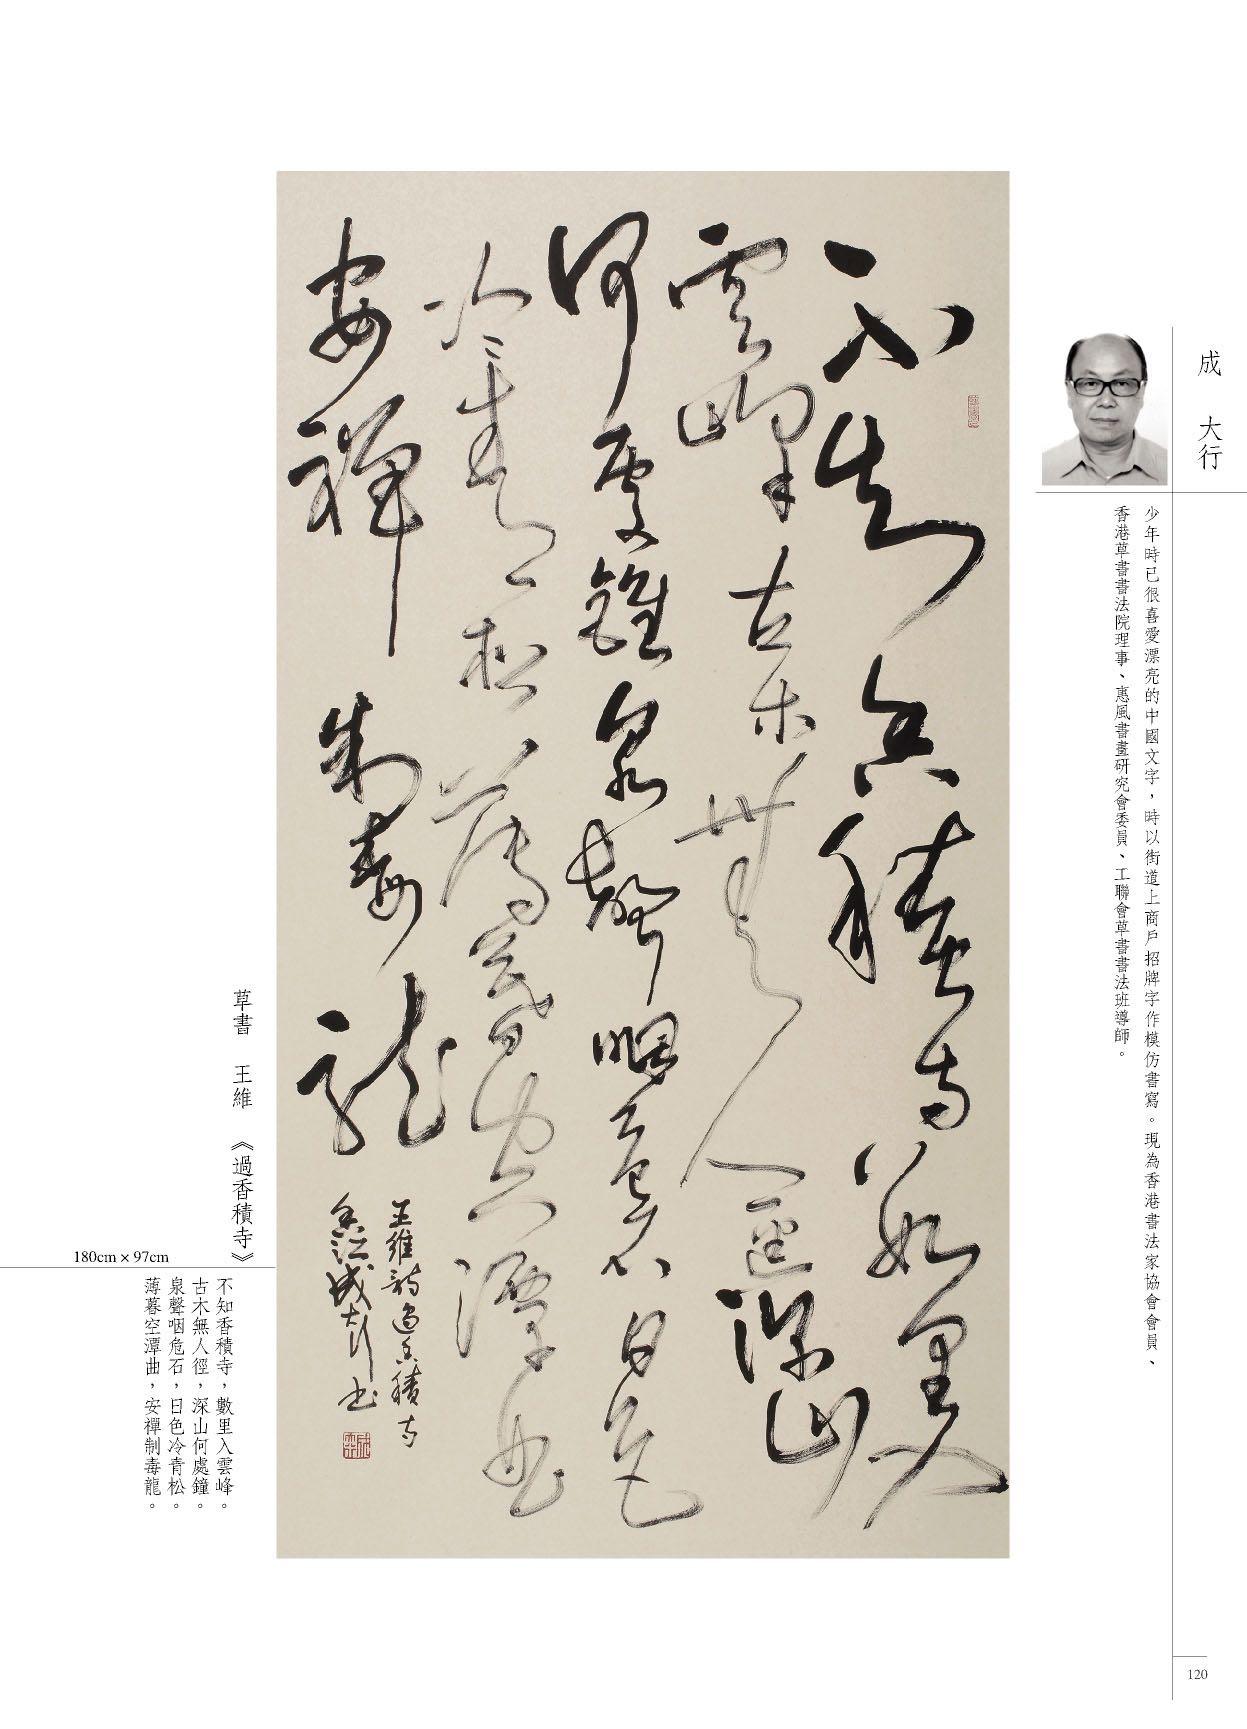 成 大行
少年時已很喜愛漂亮的中國文字，時以街道上商戶招牌字作模仿書寫。現為香港書法家協會會員、
香港草書書法院理事、惠風書畫研究會委員、工聯會草書書法班導師。
不知香積寺數里入
雲峰古木無人徑深山
何處鐘泉聲咽危石日色
冷青松薄暮空潭曲
安禪制毒龍
王維詩過香積寺
香江成大行书
草書 王維 《過香積寺》
180cm × 97cm
不知香積寺，數里入雲峰。
古木無人徑，深山何處鐘。
泉聲咽危石，日色冷青松。
薄暮空潭曲，安禪制毒龍。
120